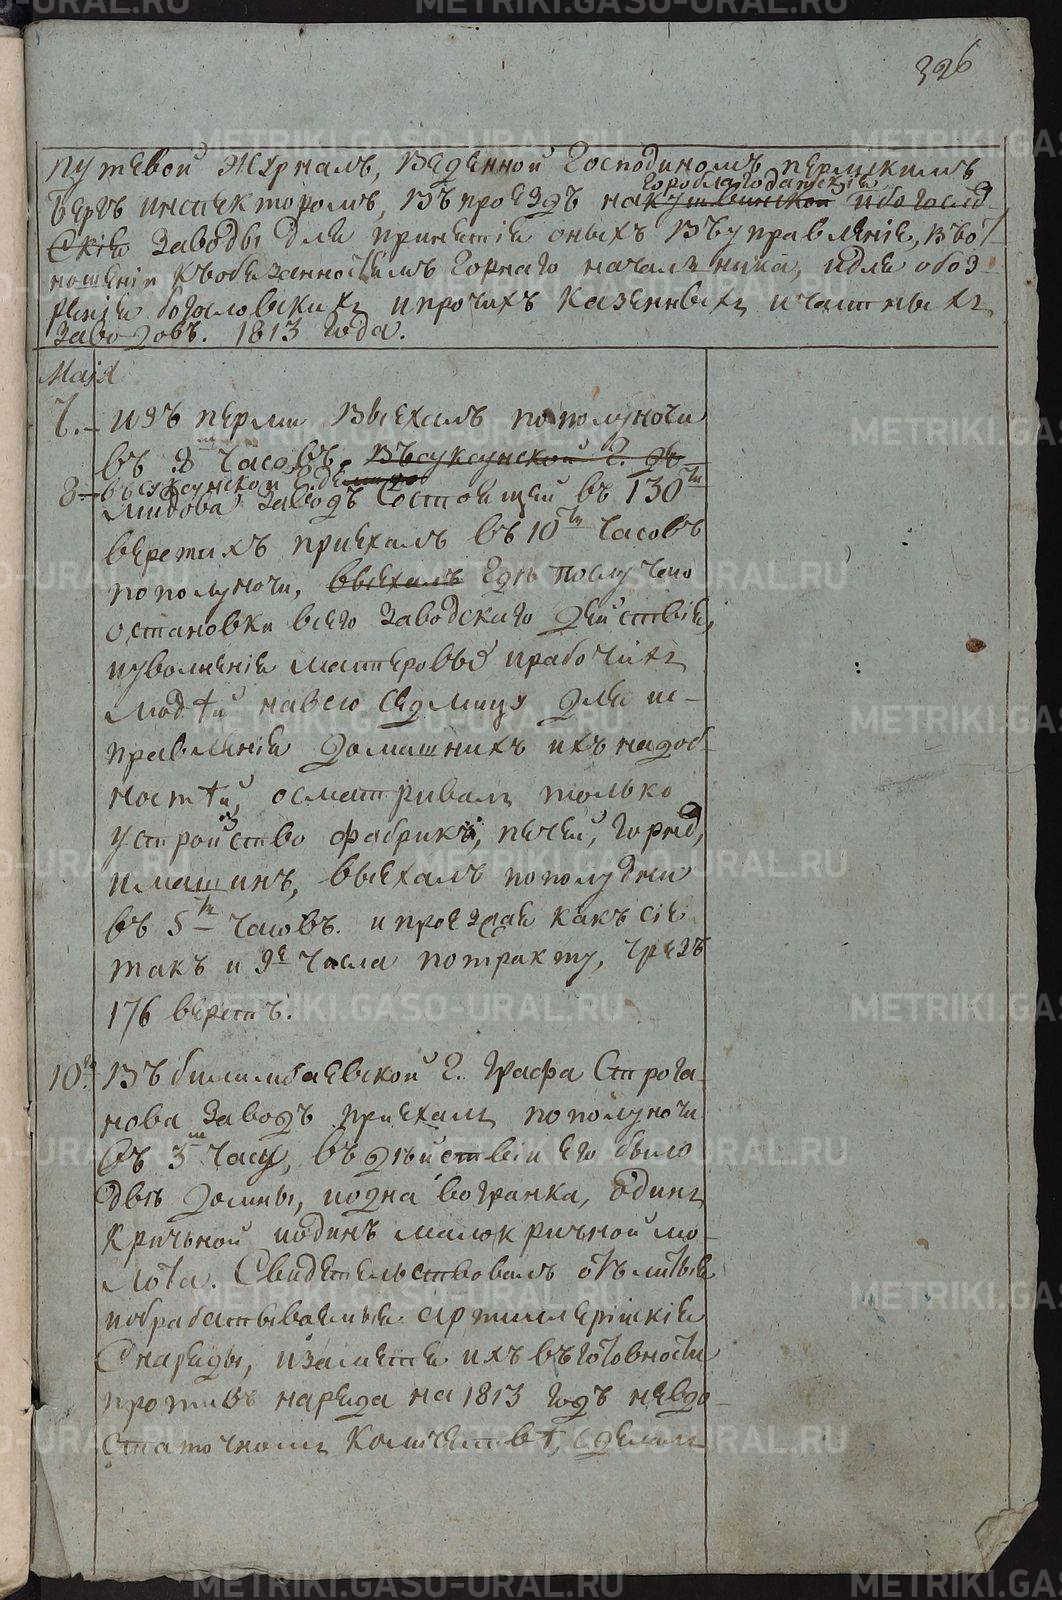 326
Путевой журналъ, веденной Господиномъ пермскимъ
бергъ инспекторомъ, въ проездъ на кушвинской гороблагодатскіе и богослов-
скіе заводы для принятія оныхъ въ управленіе, въ от-
ношеніи къ обязанностямъ Горнаго начальника, и для обоз-
ренія богословскихъ и прочихъ казенныхъ и частныхъ
заводовъ. 1813 года.
Маія
7. изъ перми выехалъ по полуночи
въ 8 часовъ. въ суксунской г. дѣ
8 въ суксунской г. де
мидова заводъ состоящей въ 130ти
верстахъ приехалъ въ 10ть часовъ
по полуночи, выехалъ где по случаю
остановки всего заводскаго действія,
и уволненія мастеровыхъ и рабочихъ
людѣй на всю седмицу для ис-
правленія домашнихъ ихъ надоб-
ностѣй, осматривалъ только
устройство фабрикъ, печей, горновъ,
и машинъ, выехалъ по полудни
въ 5ть часовъ. и проезжая какъ сіе
такъ и 9е числа по тракту, чрезъ
176 верстъ.
10е Въ билимбаевской г. графа Строга-
нова заводъ приехалъ по полуночи
въ 3мъ часу, въ дѣйствіи его было
двѣ домны, и одна вогранка, одинъ
кричной и одинъ малокричной мо-
лота. Свидетельствовалъ отълитые
и обрабатываемые артиллерійскіе
снаряды, и заметя ихъ въ готовности
противъ наряда на 1813 годъ не въ до-
статочномъ количествѣ, сделалъ